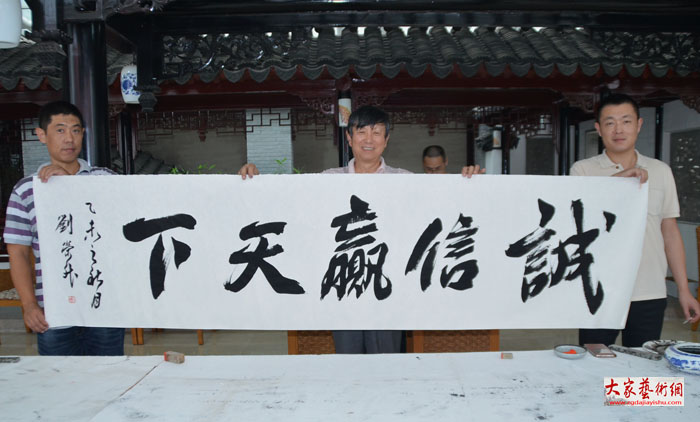 誠信贏天下
乙未之秋月
劉
大家藝術網
www.zgdajiayishu.com